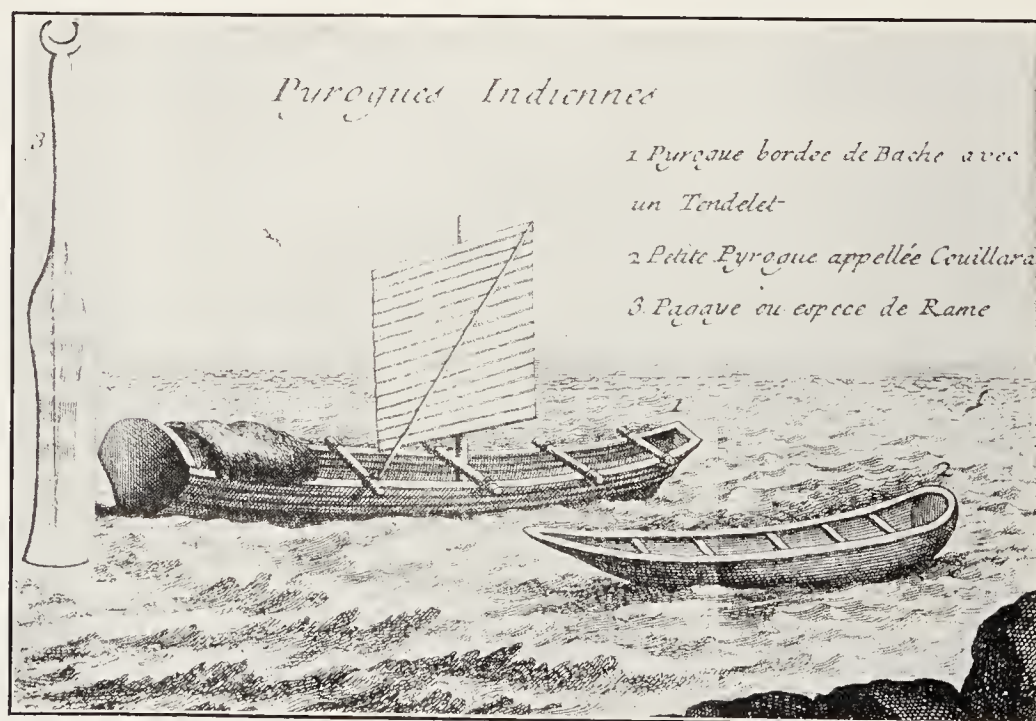 Pyrogues Indiennes
1 Pyrogue bordee de Bache avec
un Tendelet
2 Petite Pyrogue appellée Couillara
3 Pagaye ou espece de Rame
3
1
2